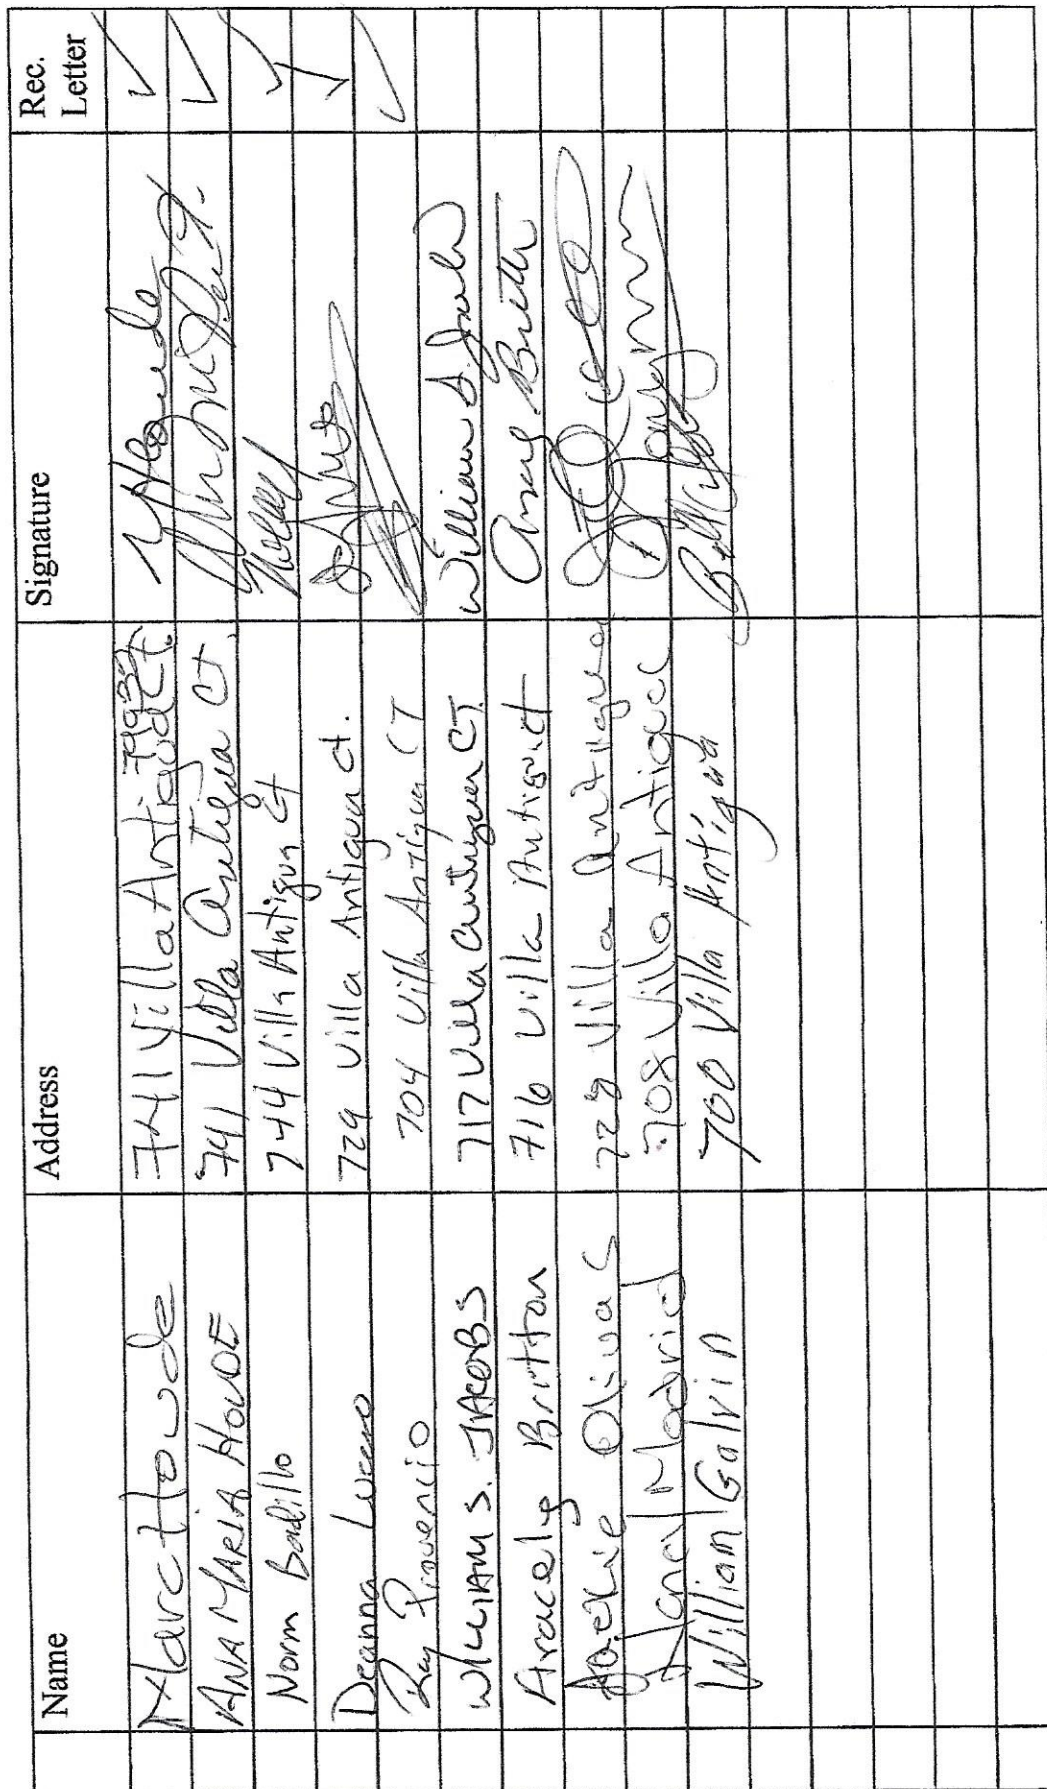 Name Address Signature Rec. Letter
Marc Houde 741 Villa Antigua Ct. 79932 ✓
ANA MARIA HOUDE 741 Villa Antigua Ct. ✓
Norm Badillo 744 Villa Antigua Ct ✓
Deanna Lucero 729 Villa Antigua Ct. ✓
Ray Provencio 704 Villa Antigua CT ✓
WILLIAM S. JACOBS 717 Villa Antigua CT. William S. Jacobs
Aracely Britton 716 Villa Antigua Ct
Jackie Olivas 728 Villa Antigua
Nancy Madrid 708 Villa Antigua
William Galvin 700 Villa Antigua